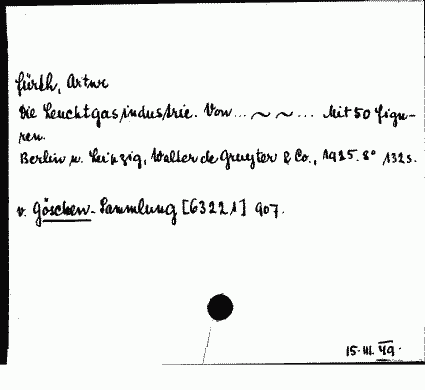 Fürth, Artur
Die Leuchtgasindustrie. Von ... ~ ~ ... Mit 50 Figu-
ren.
Berlin u. Leipzig, Walter de Gruyter & Co., 1925. 8° 132 s.
v. Göschen-Sammlung [63221] 907.
15.III.49.